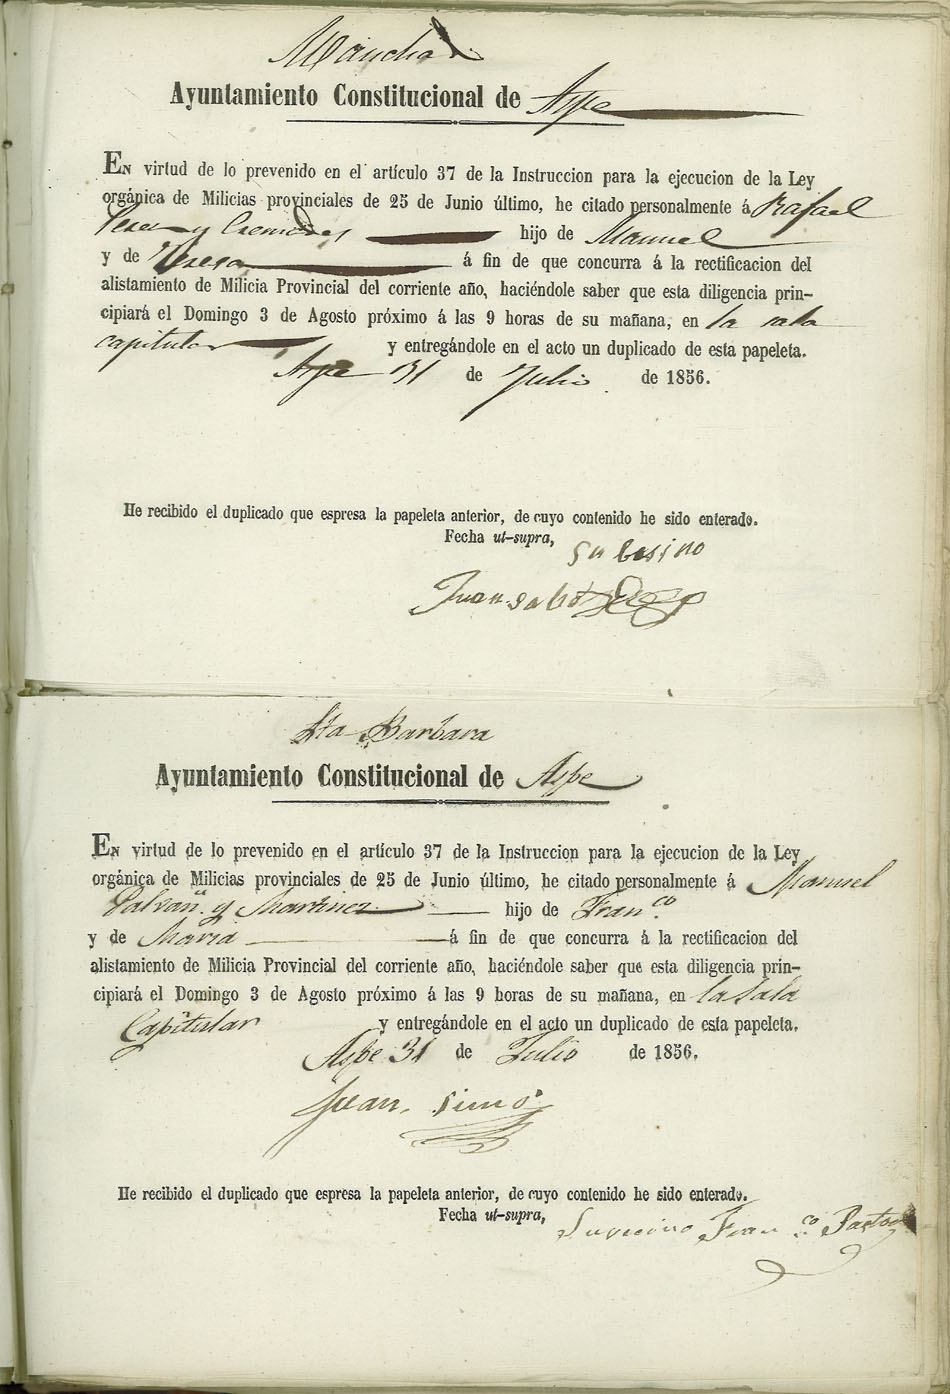 Mancha
Ayuntamiento Constitucional de Aspe
EN virtud de lo prevenido en el artículo 37 de la Instruccion para la ejecucion de la Ley
orgánica de Milicias provinciales de 25 de Junio último, he citado personalmente á Rafael
Perez y Cremades hijo de Manuel
y de Teresa á fin de que concurra á la rectificacion del
alistamiento de Milicia Provincial del corriente año, haciéndole saber que esta diligencia prin-
cipiará el Domingo 3 de Agosto próximo á las 9 horas de su mañana, en la sala
capitular y entregándole en el acto un duplicado de esta papeleta.
Aspe 31 de Julio de 1856.
He recibido el duplicado que espresa la papeleta anterior, de cuyo contenido he sido enterado.
Fecha ut-supra,
su besino
Juan
Sta Barbara
Ayuntamiento Constitucional de Aspe
EN virtud de lo prevenido en el artículo 37 de la Instruccion para la ejecucion de la Ley
orgánica de Milicias provinciales de 25 de Junio último, he citado personalmente á Manuel
Galvañ y Martinez hijo de Fran.co
y de Maria á fin de que concurra á la rectificacion del
alistamiento de Milicia Provincial del corriente año, haciéndole saber que esta diligencia prin-
cipiará el Domingo 3 de Agosto próximo á las 9 horas de su mañana, en la Sala
Capitular y entregándole en el acto un duplicado de esta papeleta.
Aspe 31 de Julio de 1856.
Juan Simó
He recibido el duplicado que espresa la papeleta anterior, de cuyo contenido he sido enterado.
Fecha ut-supra,
Su vecino Fran.co Pastor